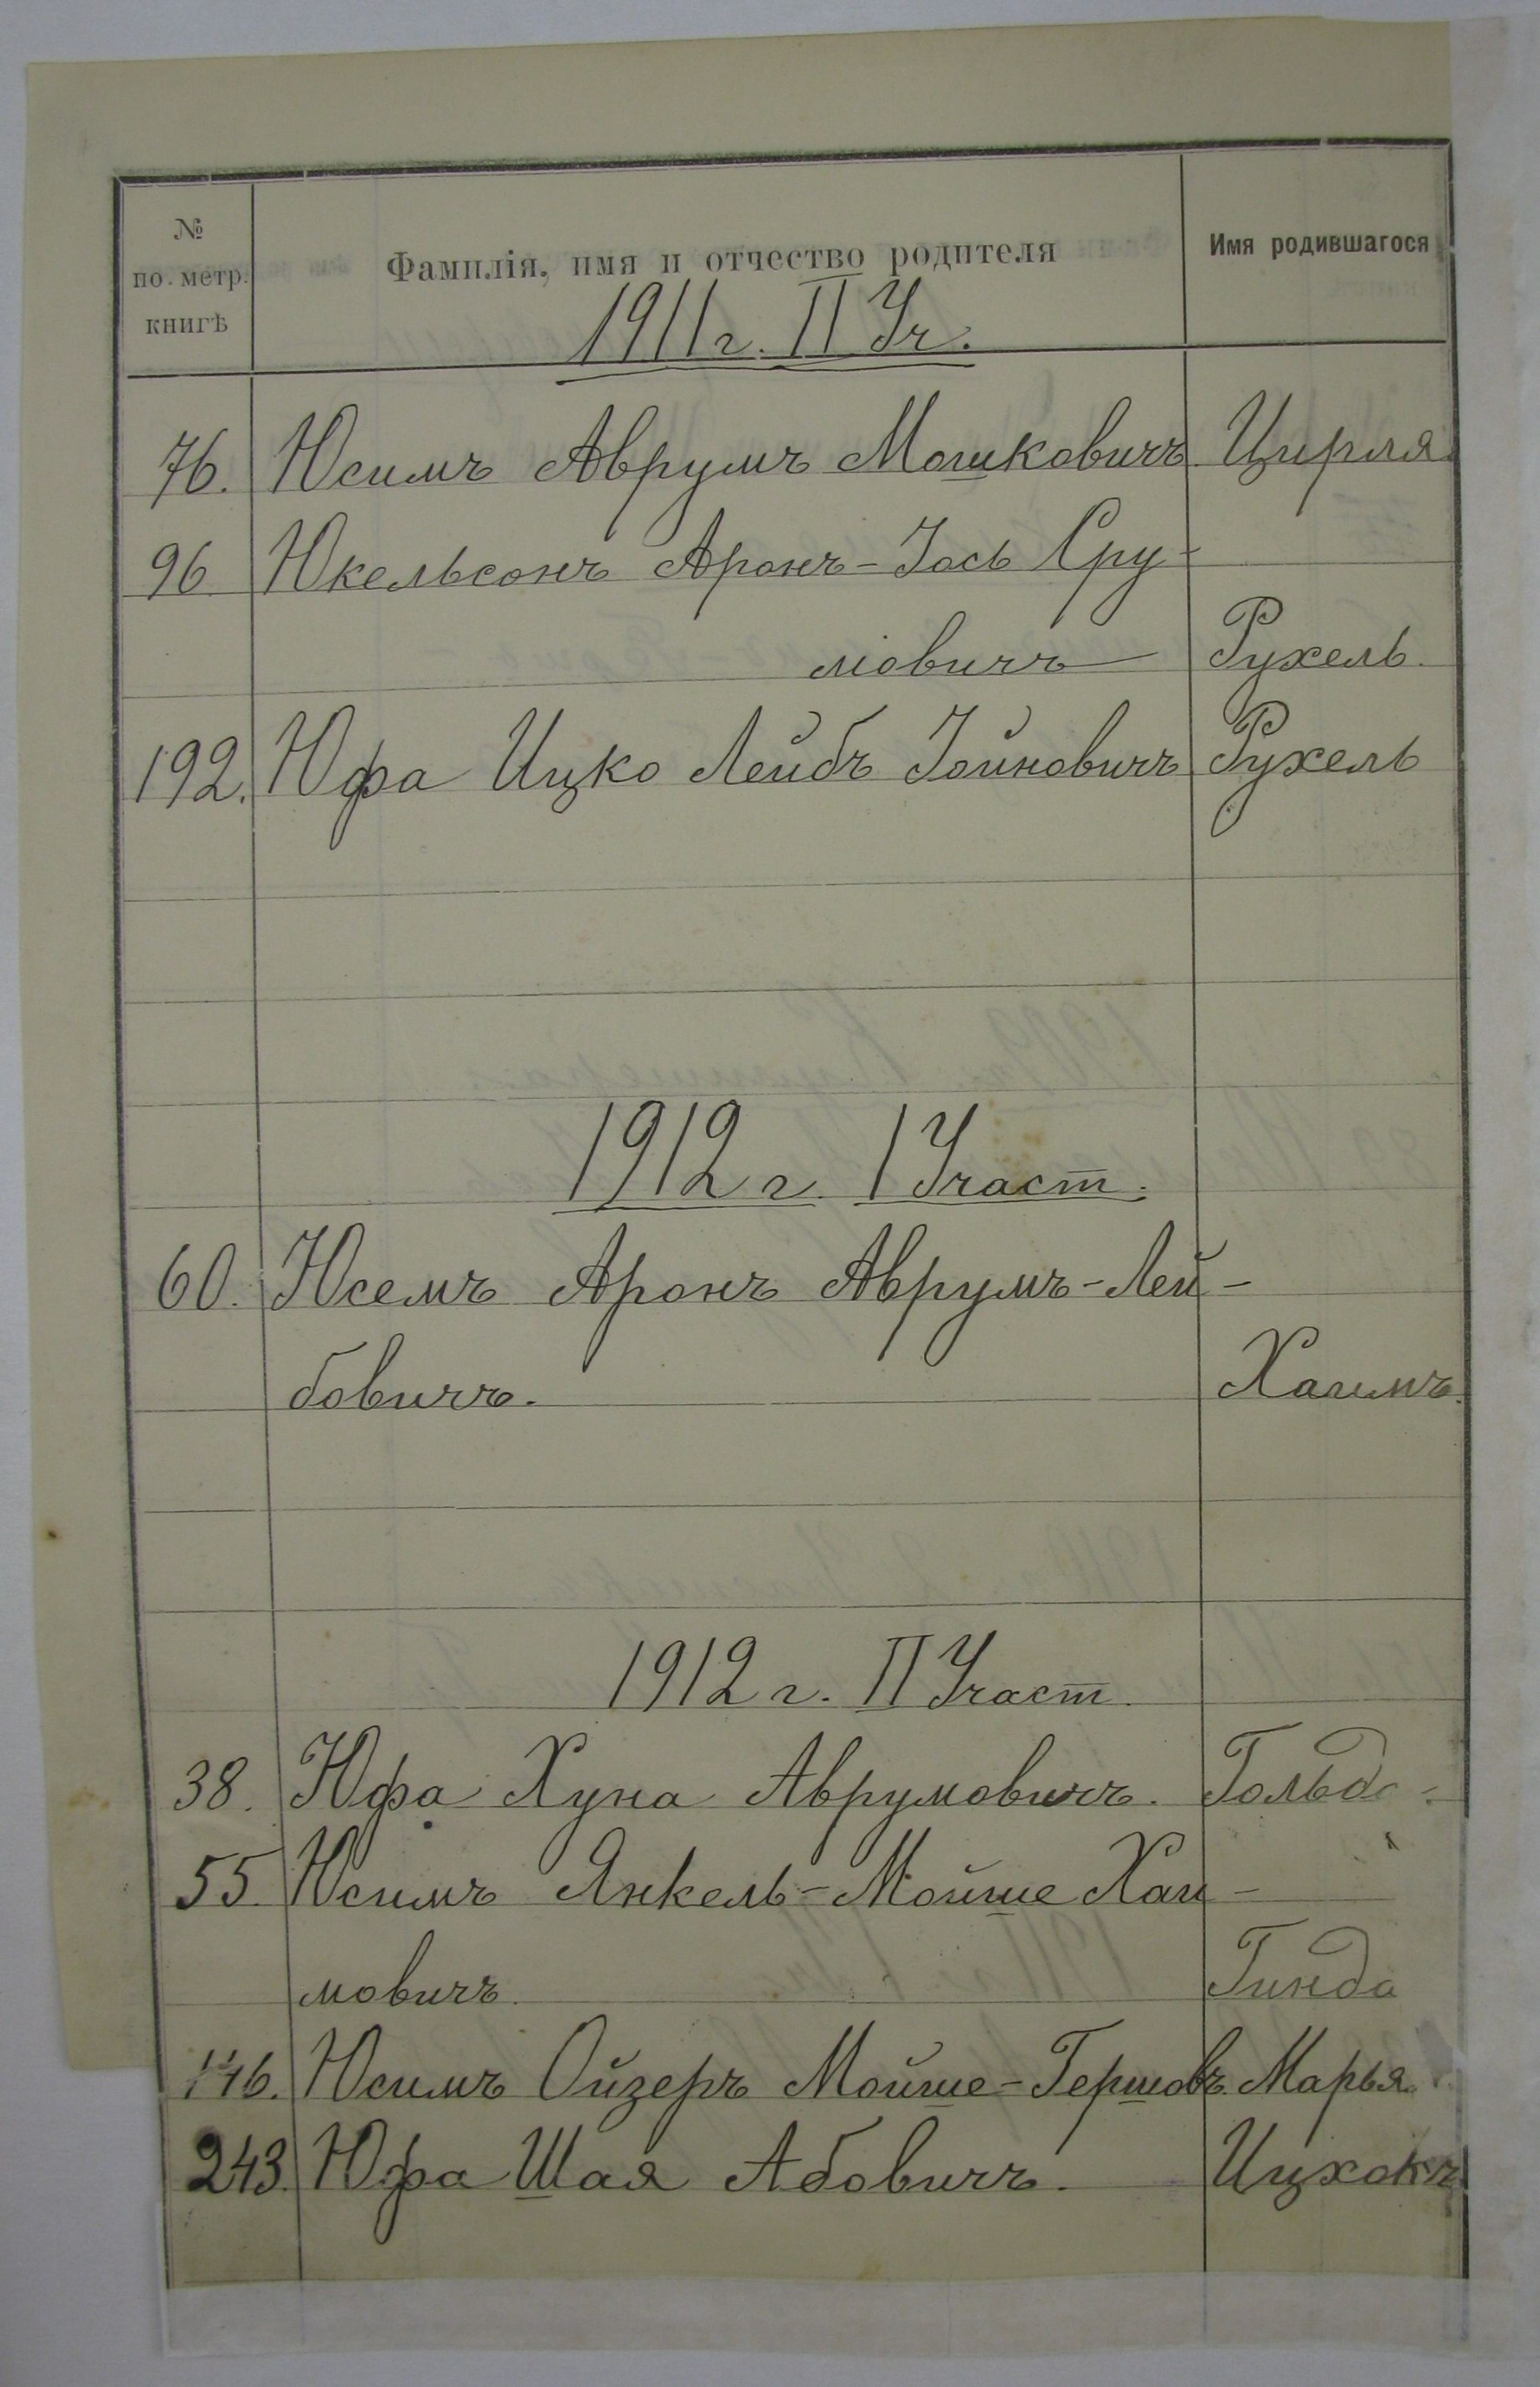 № по метр. книгѣ Фамилія, имя и отчество родителя Имя родившагося
1911 г. II Уч.
76. Юсимъ Аврумъ Мошковичъ Цирля
96 Юкельсонъ Аронъ-Іось Сру-
ліовичъ Рухель.
192. Юфа Ицко Лейбъ Іойновичъ Рухель
1912 г. I Участ.
60. Юсемъ Аронъ Аврумъ-Лей-
бовичъ. Хаимъ.
1912 г. II Участ.
38. Юфа Хуна Аврумовичъ. Гольда
55. Юсимъ Янкель-Мойше Хаи-
мовичъ. Гинда
146. Юсимъ Ойзеръ Мойше-Гершовъ Марья.
243. Юфа Шая Абовичъ. Ицхокъ